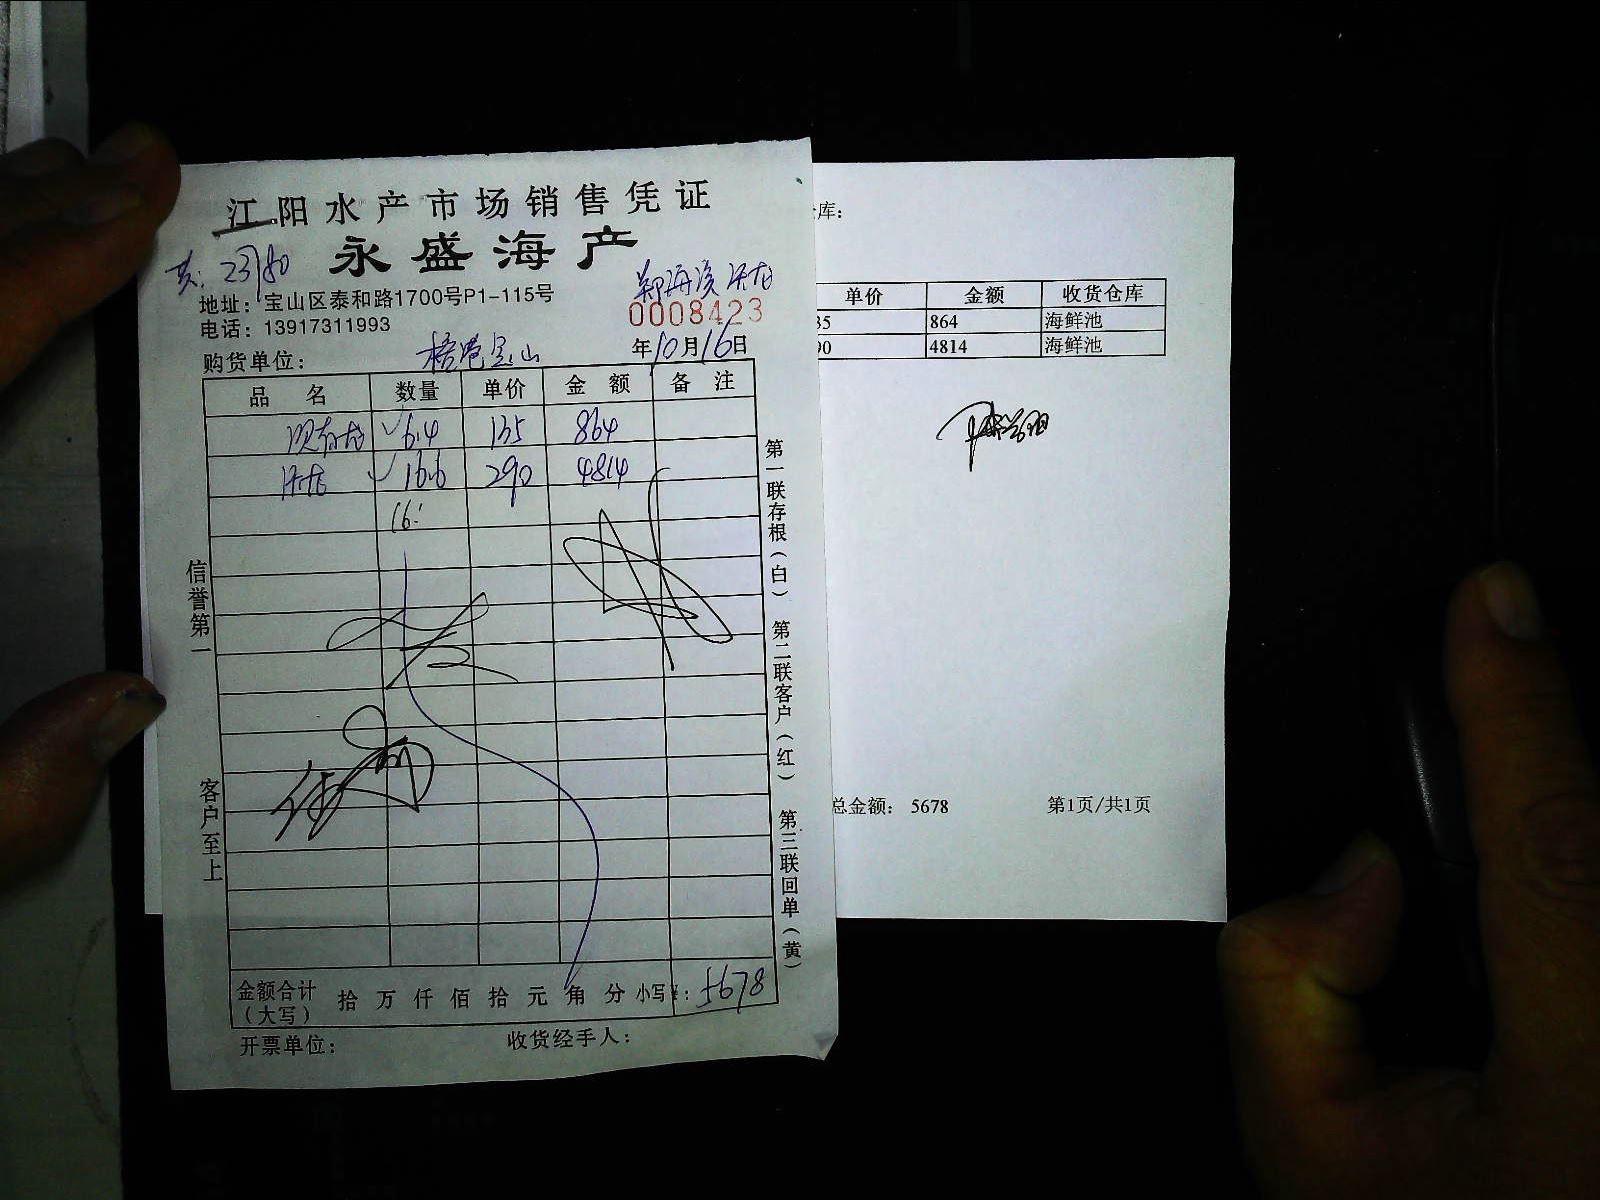 江阳水产市场销售凭证
永盛海产
共: 23780
地址：宝山区泰和路1700号P1-115号
电话：13917311993
0008423
购货单位： 宝山
年10月16日
品名 数量 单价 金额 备注
6.4 135 864
16.6 290 4814
16.
信誉第一
客户至上
第一联存根（白） 第二联客户（红） 第三联回单（黄）
金额合计（大写） 拾 万 仟 佰 拾 元 角 分 小写¥：5678
开票单位： 收货经手人：
库:
单价 金额 收货仓库
35 864 海鲜池
90 4814 海鲜池
总金额： 5678 第1页/共1页